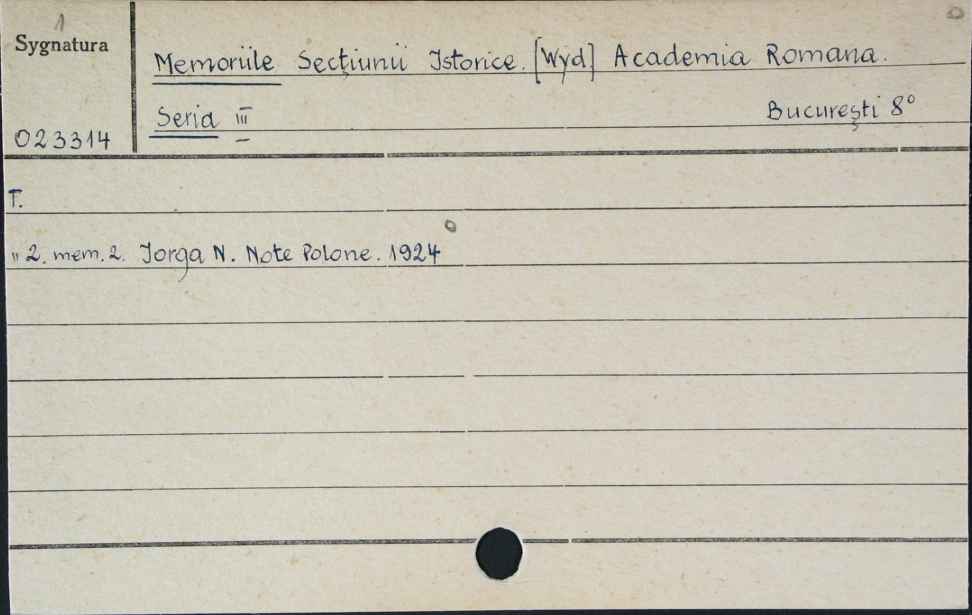 1
Sygnatura
Memoriile Secţiunii Istorice. [Wyd] Academia Romana.
Seria III
Bucureşti 8°
023314
T.
" 2. mem. 2. Jorga N. Note Polone. 1924